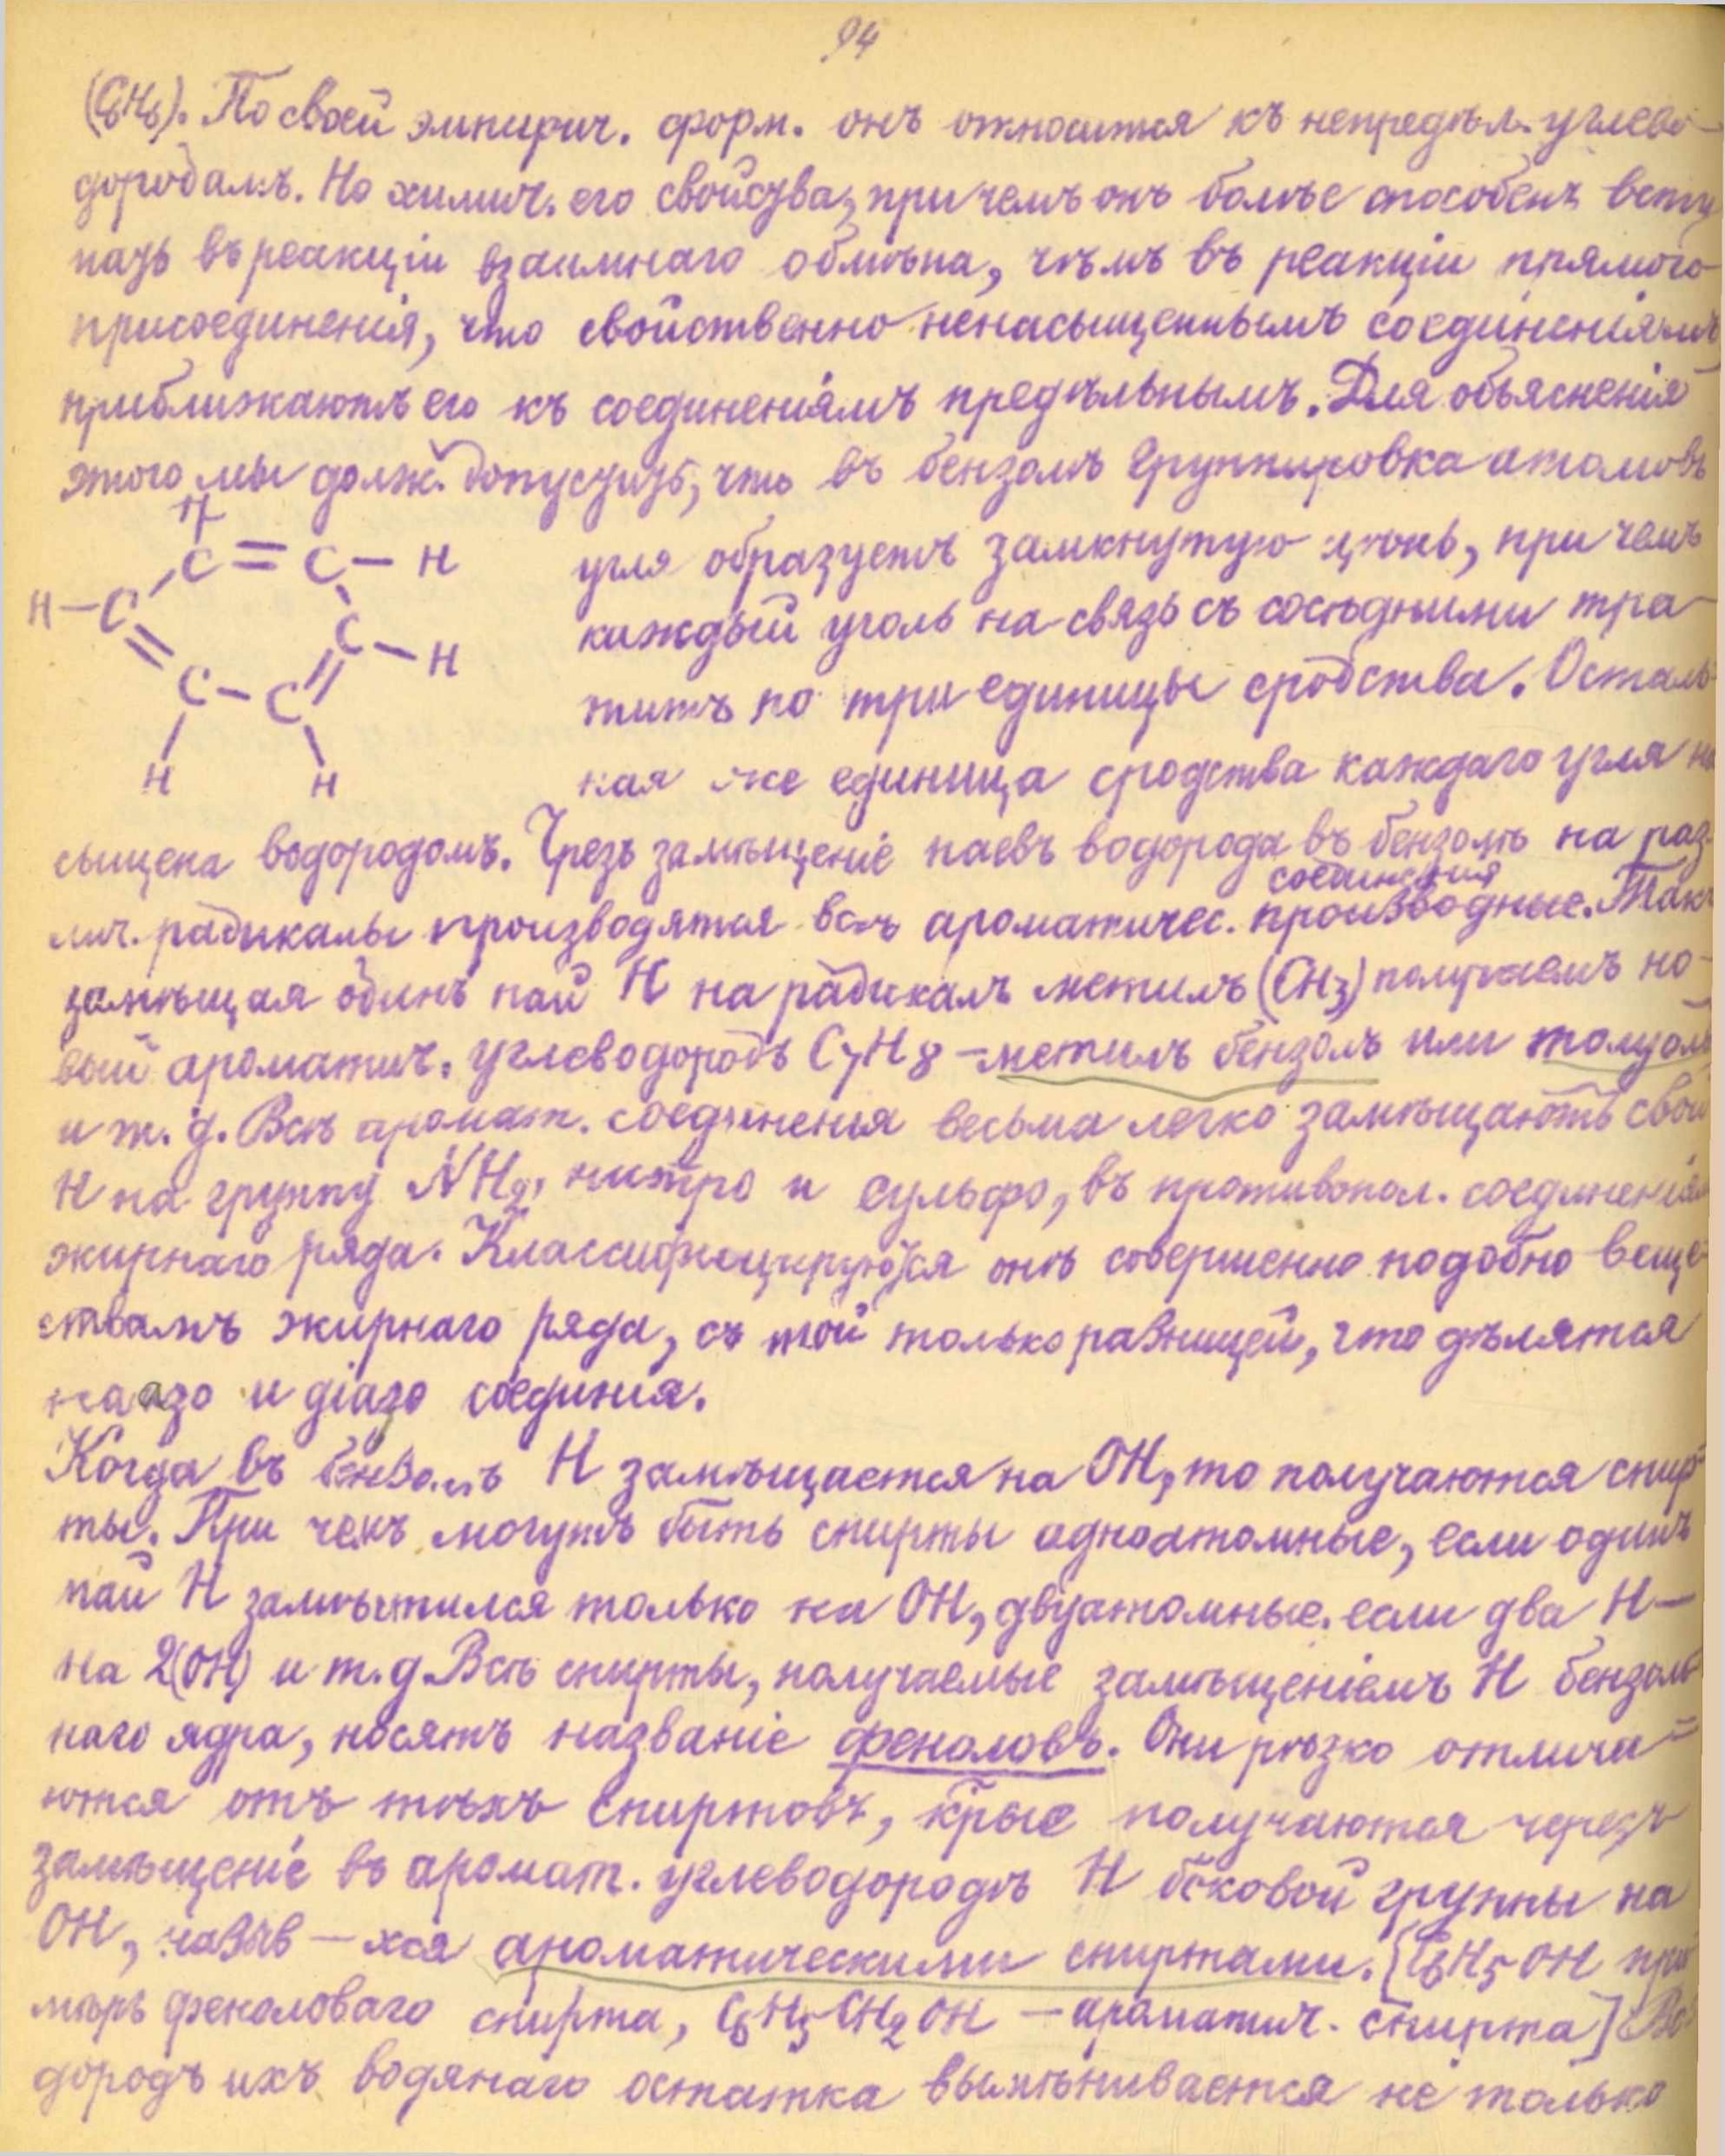 94
(C6H6). По своей эмпирич. форм. онъ относится къ непредѣл. углево-
дородамъ. Но химич. его свойства, при чемъ онъ болѣе способенъ всту
пать въ реакціи взаимнаго обмѣна, чѣмъ въ реакціи прямого
присоединенія, что свойственно ненасыщеннымъ соединеніямъ
приближаютъ его къ соединеніямъ предѣльнымъ. Для объясненія
этого мы долж. допустить, что въ бензолѣ группировка атомовъ
H
C = C – H
угля образуетъ замкнутую цѣпь, при чемъ
H – C
C – H
каждый уголь на связь съ сосѣдними тра-
C – C
титъ по три единицы сродства. Осталь
H H
ная же единица сродства каждаго угля на
сыщена водородомъ. Чрезъ замѣщеніе паевъ водорода въ бензолѣ на раз-
соединения
лич. радикалы производятся всѣ ароматичес. производные. Такъ
замѣщая одинъ пай H на радикалъ метилъ (CH3) получаемъ но-
вый ароматич. углеводородъ C7H8 – метилъ бензолъ или толуолъ
и т. д. Всѣ аромат. соединения весьма легко замѣщаютъ свой
H на группу NH2, нитро и сульфо, въ противопол. соединеніям
жирнаго ряда. Классифицируются онѣ совершенно подобно веще-
ствамъ жирнаго ряда, съ той только разницей, что дѣлятся
на азо и діазо соединия.
Когда въ бензолѣ H замѣщается на OH, то получаются спир-
ты. При чемъ могутъ быть спирты одноатомные, если одинъ
пай H замѣстился только на OH, двуатомные. если два H –
на 2(OH) и т. д. Всѣ спирты, получаемые замѣщеніемъ H бензоль-
наго ядра, носятъ названіе феноловъ. Они рѣзко отлича-
ются отъ тѣхъ спиртовъ, крые получаются черезъ
замѣщеніе въ аромат. углеводородѣ H боковой группы на
OH, назыв – хся ароматическими спиртами. [C6H5OH при
мѣръ феноловаго спирта, C6H5CH2OH – ароматич. спирта] Во
дородъ ихъ водянаго остатка вымѣнивается не только